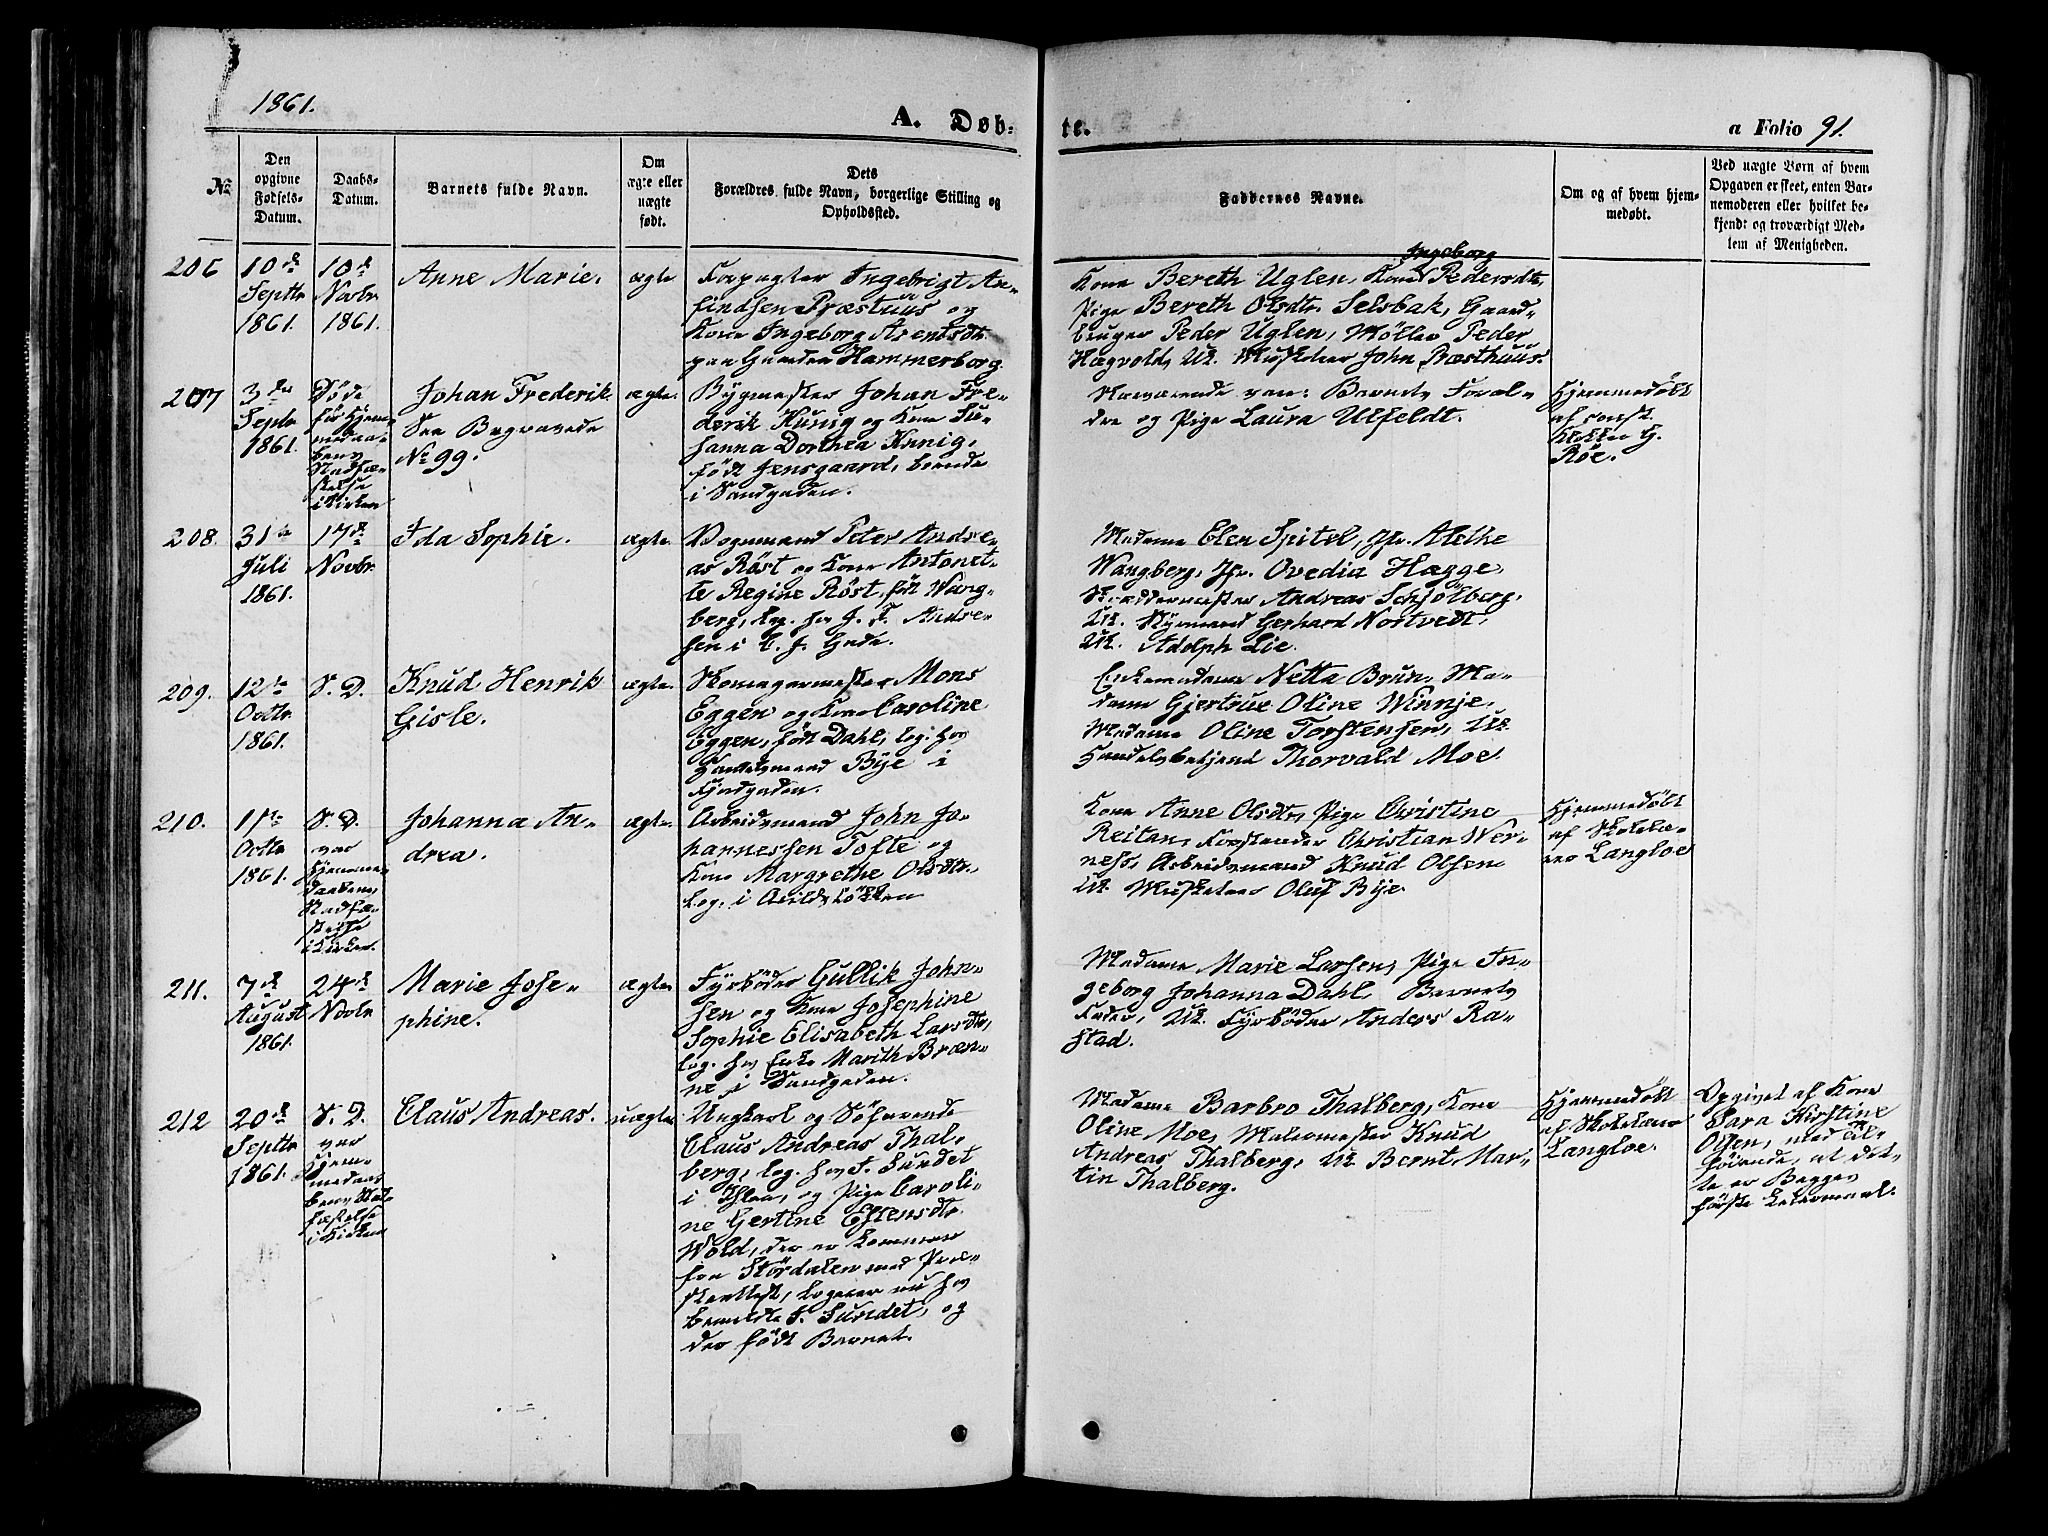 1861.
A. Døb-
te.
a Folio 91.
No
Den
opgivne
Fødsels-
Datum.
Daabs-
Datum.
Barnets fulde Navn.
Om
ægte eller
uægte
født.
Dets
Forældres fulde Navn, borgerlige Stilling og
Opholdssted.
Faddernes Navne.
Om og af hvem hjem-
medøbt.
Ved uægte Børn af hvem
Opgaven er skeet, enten Bar-
nemoderen eller hvilket be-
kjendt og troværdigt Med-
lem af Menigheden.
206
10de
Septbr
1861.
10de
Novbr
1861.
Anne Marie.
ægte
Forpagter Ingebrigt An-
findsen Præsthus og
Kone Ingeborg Arentsdtr.
paa Gaarden Hammerborg.
Ingeborg
Kone Bereth Uglen, Kone Pedersdtr,
Pige Bereth Olsdtr. Selsbak, Gaard-
bruger Peder Uglen, Møller Peder
Hægvold, Uk. Musketeer John Præsthuus.
207
3die
Septbr
1861.
Døde
før Hjem-
medaa-
bens
Stadfæ-
stelse
i Kirken
Johan Frederik
See Begravede
No 99.
ægte.
Bygmester Johan Fre-
derik Kunig og Kone Su-
sanna Dorthea Kunig,
født Jensgaard, boende
i Sandgaden.
Nærværende var: Barnets Foræl-
dre og Pige Laura Ulfeldt.
Hjemmedøbt
af
Klokker G.
Röe.
208.
31te
Juli
1861.
17de
Novbr
Ida Sophie.
ægte.
Vognmand Peter Andre-
as Röst og Kone Antonet-
te Regine Röst, født Wang-
berg, log. hos J. F. Andre-
sen i C. J. Gade.
Madame Elen Spitel, Jfr. Alethe
Wangberg, Jfr. Ovedia Hagge,
Skræddermester Andreas Schjölberg,
Uk. Styrmand Gerhard Nostvedt,
Uk. Adolph Lie.
209.
12te
Octbr
1861.
S. D.
Knud Henrik
Gisle.
ægte.
Skomagermester Mons
Eggen og Kone Caroline
Eggen, født Dahl, log. hos
Handelsmand Bye i
Fjordgaden.
Enkemadame Netta Brun, Ma-
dame Gjertrue Oline Winnje,
Madame Oline Torstensen, Uk.
Handelsbetjent Thorvald Moe.
210.
1ste
Octbr
1861.
S. D.
var
Hjemme-
daabens
Stadfæ-
stelse
i Kirken.
Johanna An-
drea.
ægte.
Arbeidsmand John Jo-
hannessen Tofte og
Kone Margrethe Olsdtr.,
log. i Hvidløkken
Kone Anne Olsdtr, Pige Christine
Reitan, Forstander Christian Wer-
ness, Arbeidsmand Knud Olsen
Uk. Musketeer Oluf Bye.
Hjemmedøbt
af Skolelæ-
rer Langloe
211.
7de
August
1861.
24de
Novbr
Marie Jose-
phine.
ægte
Fyrbøder Gullik John-
sen og Kone Josephine
Sophie Elisabeth Larsdtr,
log. hos Enke Marith Bræn-
ne i Sandgaden.
Madame Marie Larsen, Pige In-
geborg Johanna Dahl, Barnets
Fader, Uk. Fyrbøder Anders Ra-
stad.
212
20de
Septbr
1861.
S. D.
var
Hjem-
medaa-
bens Stad-
fæstelse
i Kirken
Claus Andreas.
uægte
Ungkarl og Søfarende
Claus Andreas Thal-
berg, log. hos I. Sundet
i Ihlen, og Pige Caroli-
ne Gertine Estensdtr.
Wold, der er kommen
fra Stördalen med Præ-
steattest, logerer nu hos
bemeldte I. Sundet, og
der født Barnet.
Madame Barbro Thalberg, Kone
Oline Moe, Malermester Knud
Andreas Thalberg, Uk Bernt Mar-
tin Thalberg.
Hjemmedøbt
af Skolelærer
Langloe.
Opgivet af Kone
Sara Kirstine
Olsen, med Til-
føiende, at det-
te er Begges
første Leiermaal.